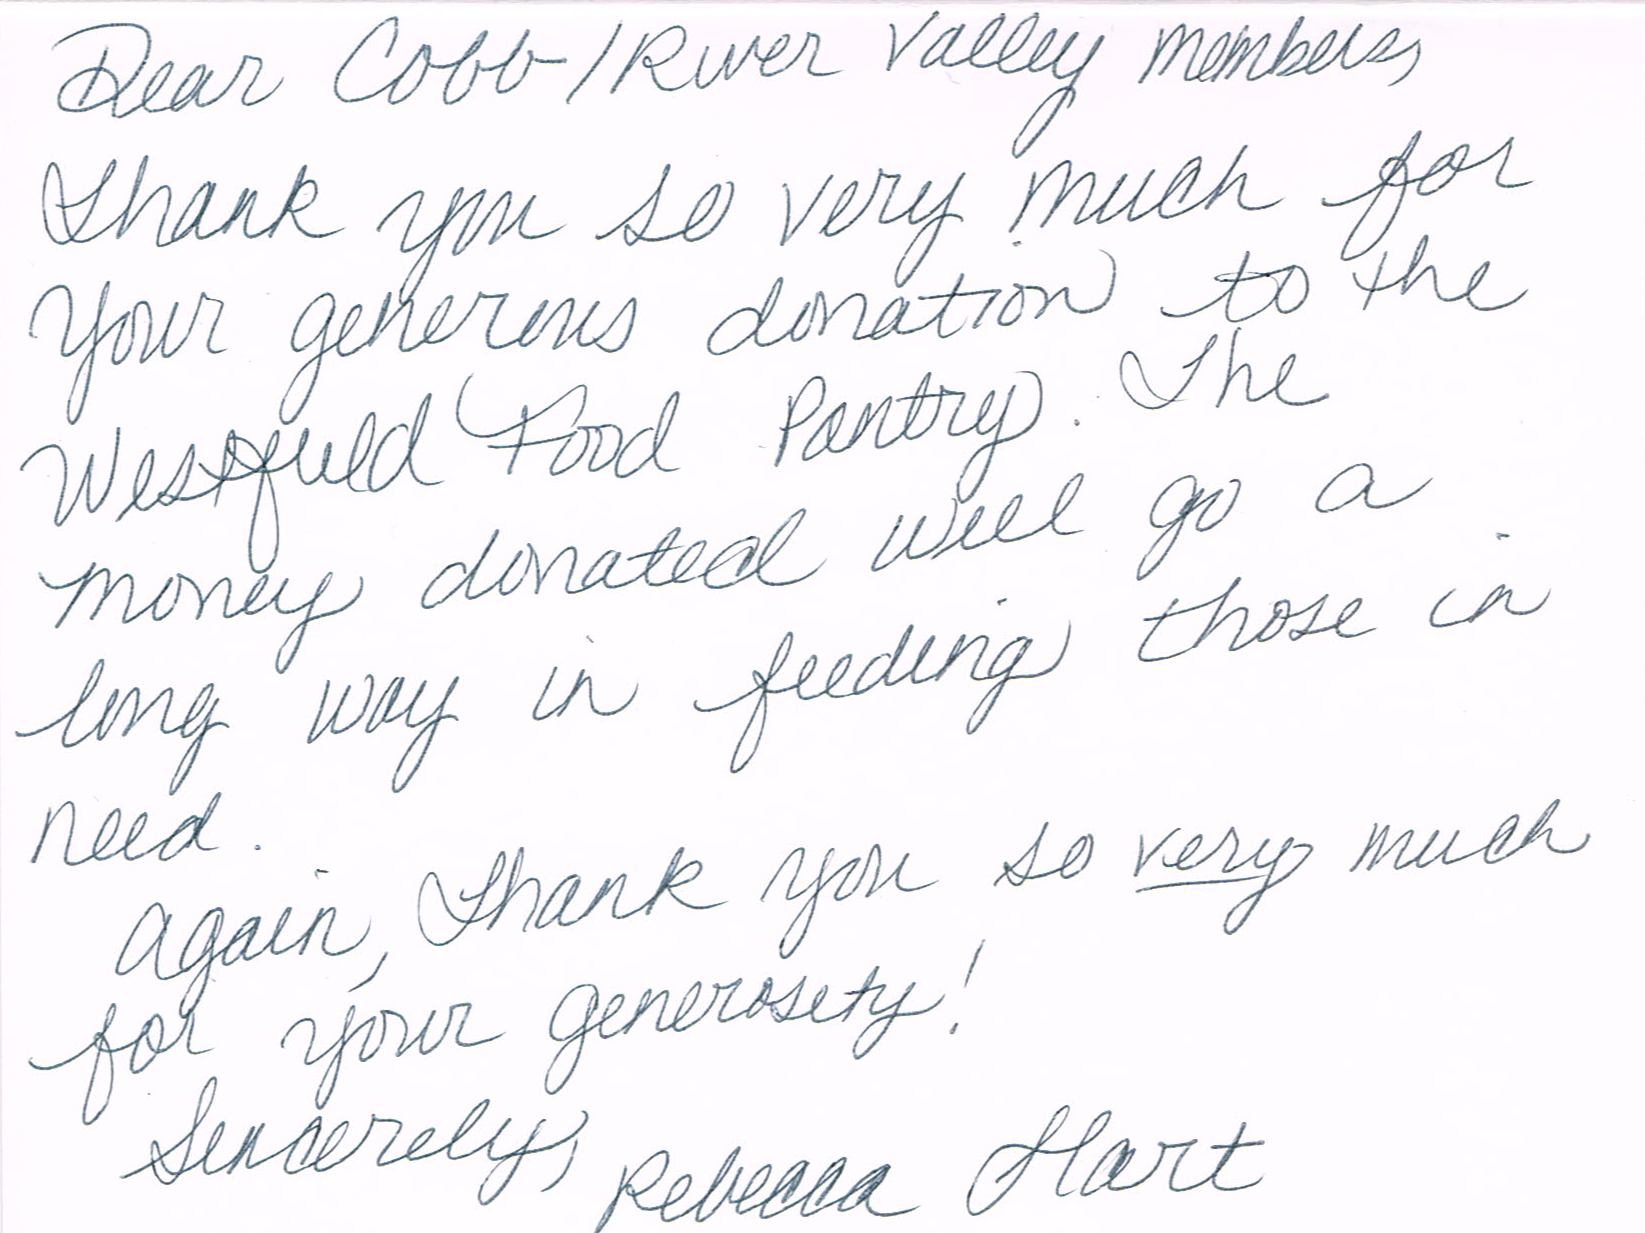 Dear Cobb/River Valley members,
Thank you so very much for
your generous donation to the
Westfield Food Pantry. The
money donated will go a
long way in feeding those in
need.
Again, thank you so very much
for your generosity!
Sincerely, Rebecca Hart